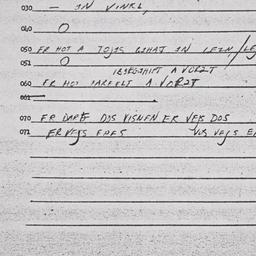 030 — IN VINKL,
040 O
050 ER HOT A TOJTS GIHAT IN LEIN/
051 O
IBERGIHIPT A VORZT
060 ER HOT FARFELT A VORST
061
070 ER DARF DOS VISNEN ER VEJS DOS
071 ER VEJS EPES VOS VEJS